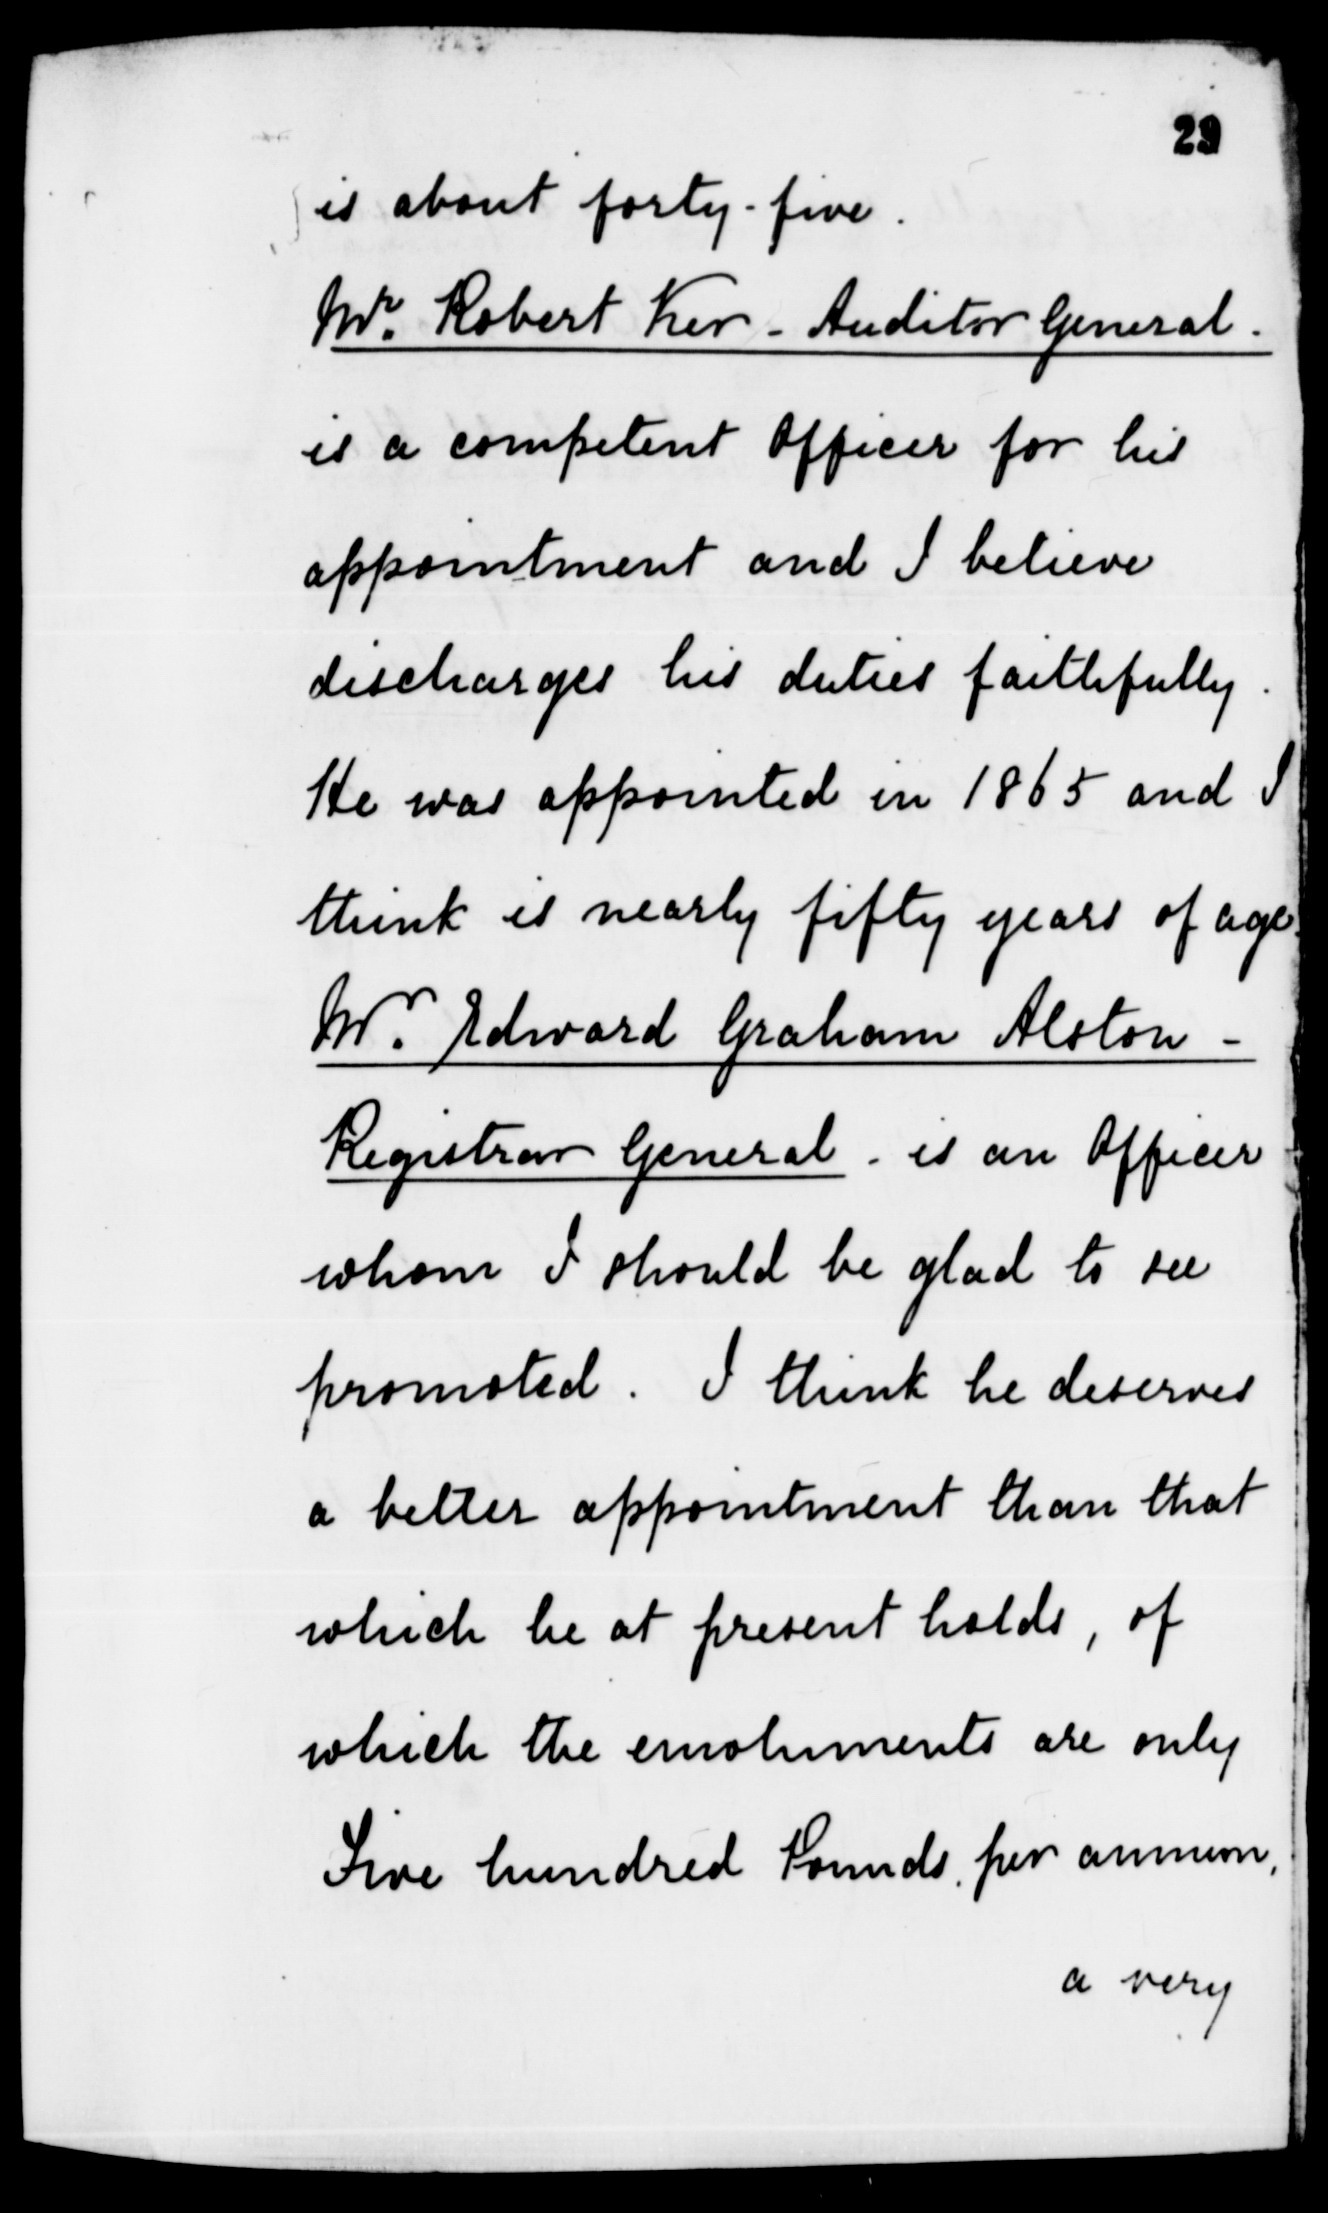 29
is about forty-five.
Mr. Robert Ker - Auditor General.
is a competent Officer for his
appointment and I believe
discharges his duties faithfully.
He was appointed in 1865 and I
think is nearly fifty years of age.
Mr. Edward Graham Alston -
Registrar General. is an Officer
whom I should be glad to see
promoted. I think he deserves
a better appointment than that
which he at present holds, of
which the emoluments are only
Five hundred Pounds. per annum,
a very